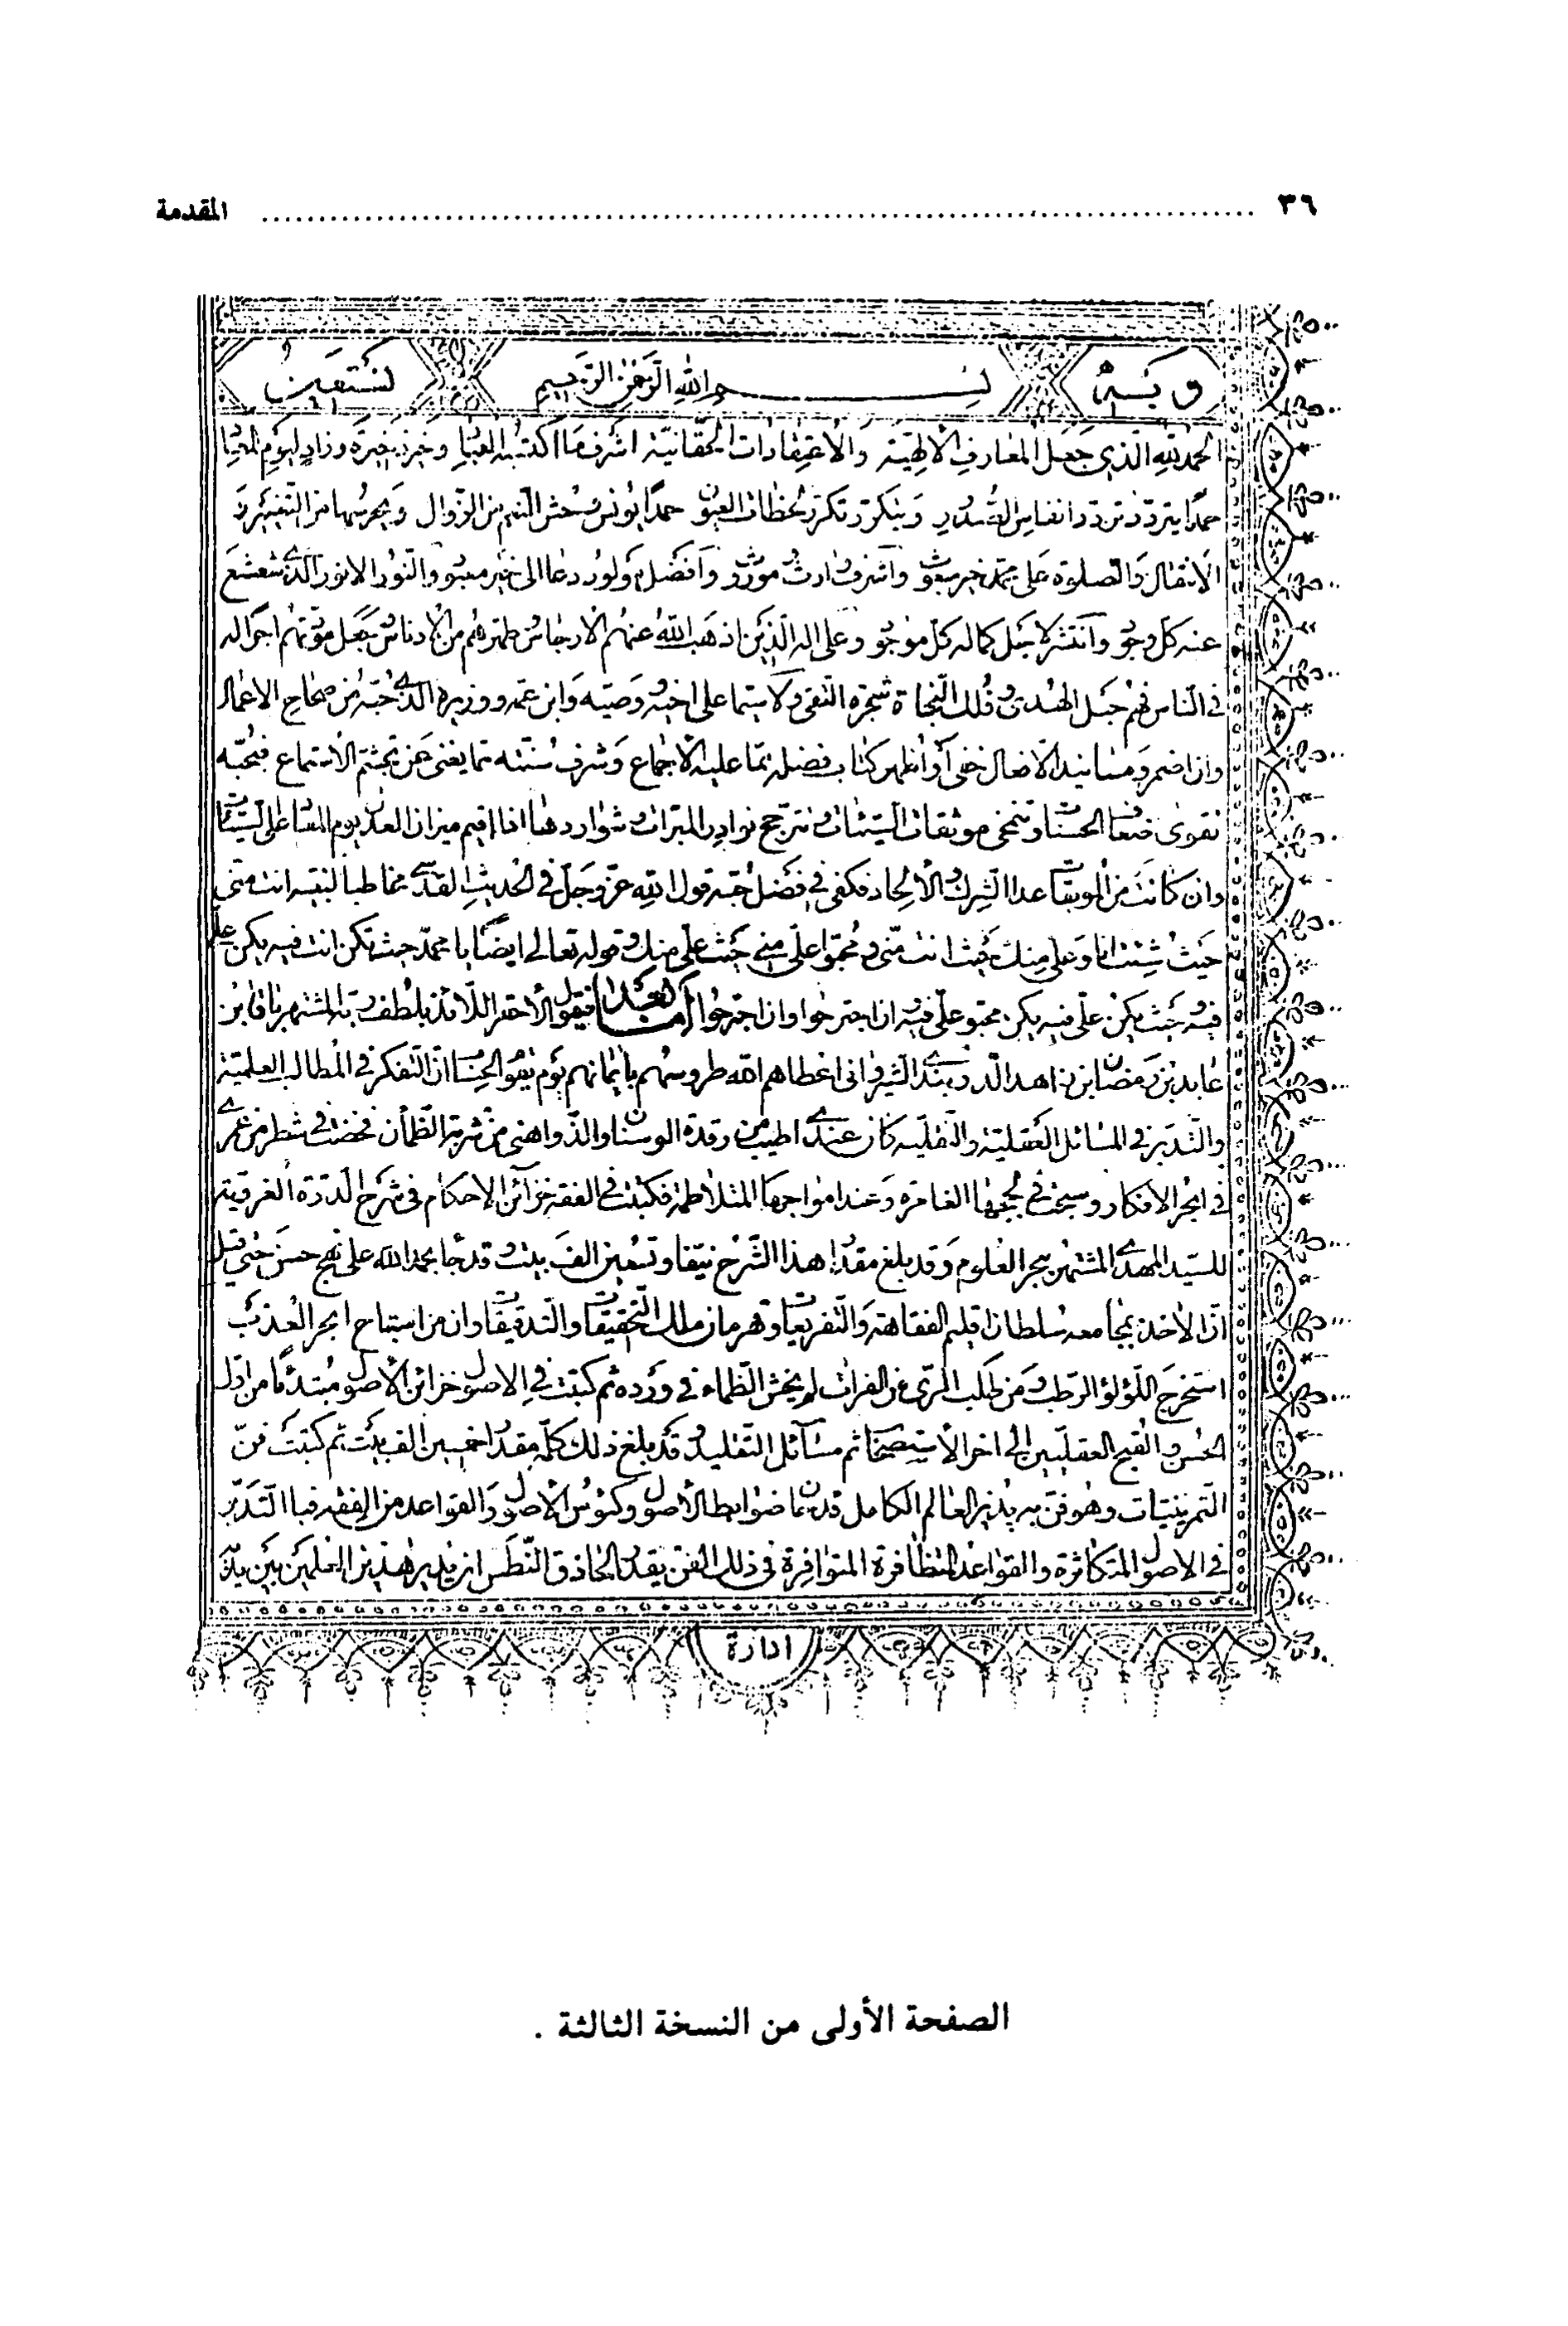 ٣٦ ........ المقدمة
وبه بسم الله الرحمن الرحيم نستعين
الحمد لله الذي جعل المعارف الالهية والاعتقادات الحقانية اشرف ما اكتسبه العباد وخير ذخيرة وزاد ليوم المعاد
حمدا يتردد تردد انفاس الصدور ويتكرر تكرر لحظات العيون حمدا يونس وحش النعم من الزوال ويحرسها من التغيير و
الانتقال والصلوة على محمد خير مبعوث واشرف وارث موروث وافضل مولود دعا الى خير معبود والنور الانور الذي شعشع
عنه كل وجود وانتشر لاجل كماله كل موجود وعلى اله الذين اذهب الله عنهم الارجاس وطهرهم من الادناس وجعل مودتهم اجرا له
في الناس فهم حبل الهدى وفلك النجاة وشجرة التقى ولا سيما على اخيه ووصيه وابن عمه ووزيره الذي حبه من صحاح الاعمال
وان اضمر ومسانيد الافعال خفى او اظهر كتاب فضله مما عليه الاجماع وشرف سنته مما يغنى عن تجشم الاستماع فبحبه
تقوى ضعاف الحسنات وتنمحى موثقات السيئات وتترجح نوادر المبرات وشواردها اذا اقيم ميزان العدل يوم
وان كانت من الموبقات عدا الشرك والالحاد فكفى في فضل حبه قول الله عز وجل في الحديث القدسي مخاطبا لنبيه انت مني
حيث شئت انا وعلى منك بحيث انت منى و محبوا على منى بحيث على منك وقوله تعالى ايضا يا محمد حيث تكن انت فيه يكن على
فيه وحيث يكن على فيه يكن محبو على فيه ان اجترحوا وان اجترحوا اما بعد فيقول الاحقر اللائذ بلطف ربه المشتهر باقا بن
عابد بن رمضان ابن زاهد الدربندي الشيرواني اعطاهم الله طروسهم بايمانهم يوم يقوم الحساب ان التفكر في المطالب العلمية
والتدبر في المسائل العقلية والنقلية كان عندي اطيب من رقدة الوسنان والذ واهنى من شربة الظمأن فخضت في شطر من عمري
في ابحر الافكار وسبحت في لججها الغامرة وعند امواجها المتلاطمة فكتبت في الفقه خزائن الاحكام في شرح الدرة الغروية
للسيد المهدي المشتهر ببحر العلوم وقد بلغ مقدار هذا الشرح نيفا وتسعين الف بيت وقد جاء بحمد الله على نهج حسن حتى قيل
ان الاخذ بمجامعه سلطان اقليم الفقاهة والتفريعات وقهرمان ملك التحقيقات والتدقيقات وان من استباح ابحر العذب
استخرج اللؤلؤ الرطب ومن طلب الري عن الفرات لم يخش الظماء في ورده ثم كتبت في الاصول خزائن الاصول مبتدئا من اول
الحسن والقبح العقليين الى اخر الاستصحاب ثم مسائل التقليد وقد بلغ ذلك كله مقدار خمسين الف بيت ثم كتبت فن
التمرينيات وهو فن به يدير العالم الكامل قدن ما ضوابط الاصول وكئوس الاصول والقواعد من الفقه فبا التدبر
في الاصول المتكاثرة والقواعد المتظافرة المتوافرة في ذلك الفن يقدر الحاذق النطس ان يدير هذين العلمين بين يديه
ادارة
الصفحة الأولى من النسخة الثالثة .